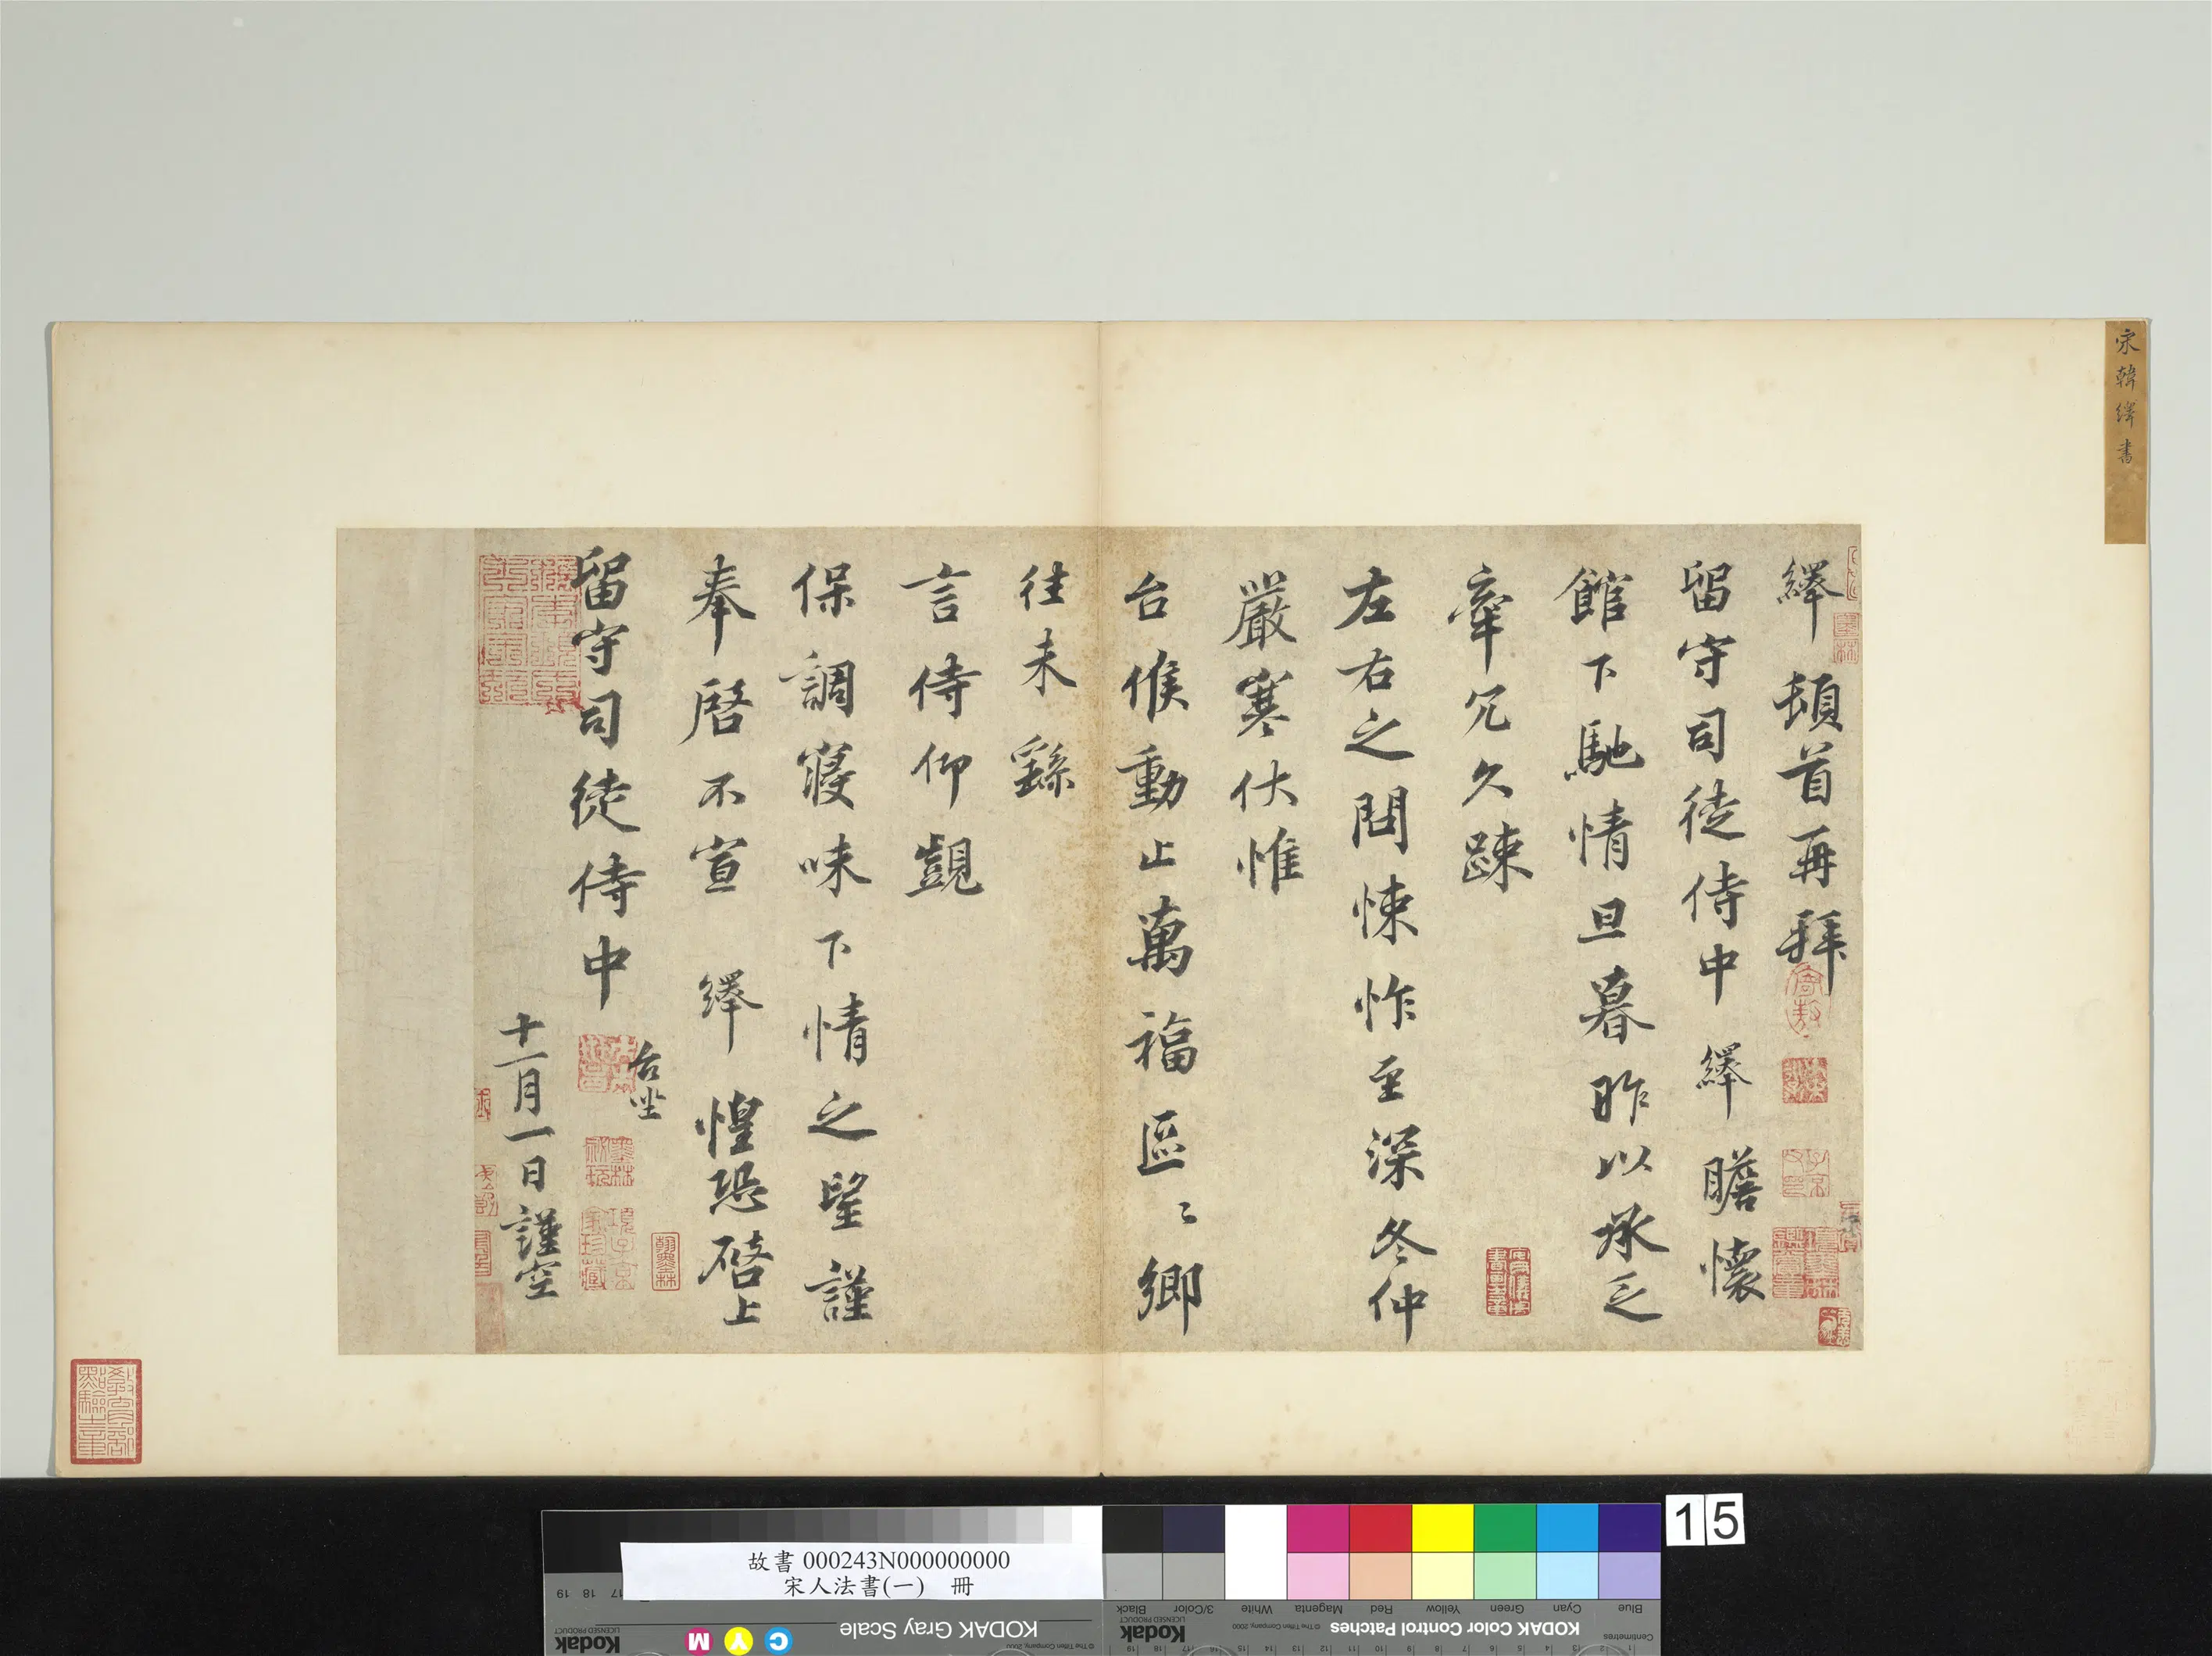 宋韓繹書
繹頓首再拜
留守司徒侍中繹瞻懷
館下馳情旦暮昨以承乏
牽冗久踈
左右之問悚怍至深冬仲
嚴寒伏惟
台候動止萬福區〻鄉
往未繇
言侍仰覬
保調寢味下情之望謹
奉啓不宣繹惶恐啓上
留守司徒侍中
台坐
十一月一日謹空
教育部
點驗之章
15
故書 000243N000000000
宋人法書(一) 冊
KODAK Gray Scale
Kodak
LICENSED PRODUCT
C Y M
© The Tiffen Company, 2000
KODAK Color Control Patches
Kodak
LICENSED PRODUCT
© The Tiffen Company, 2000
Blue Cyan Green Yellow Red Magenta White 3/Color Black
Centimetres